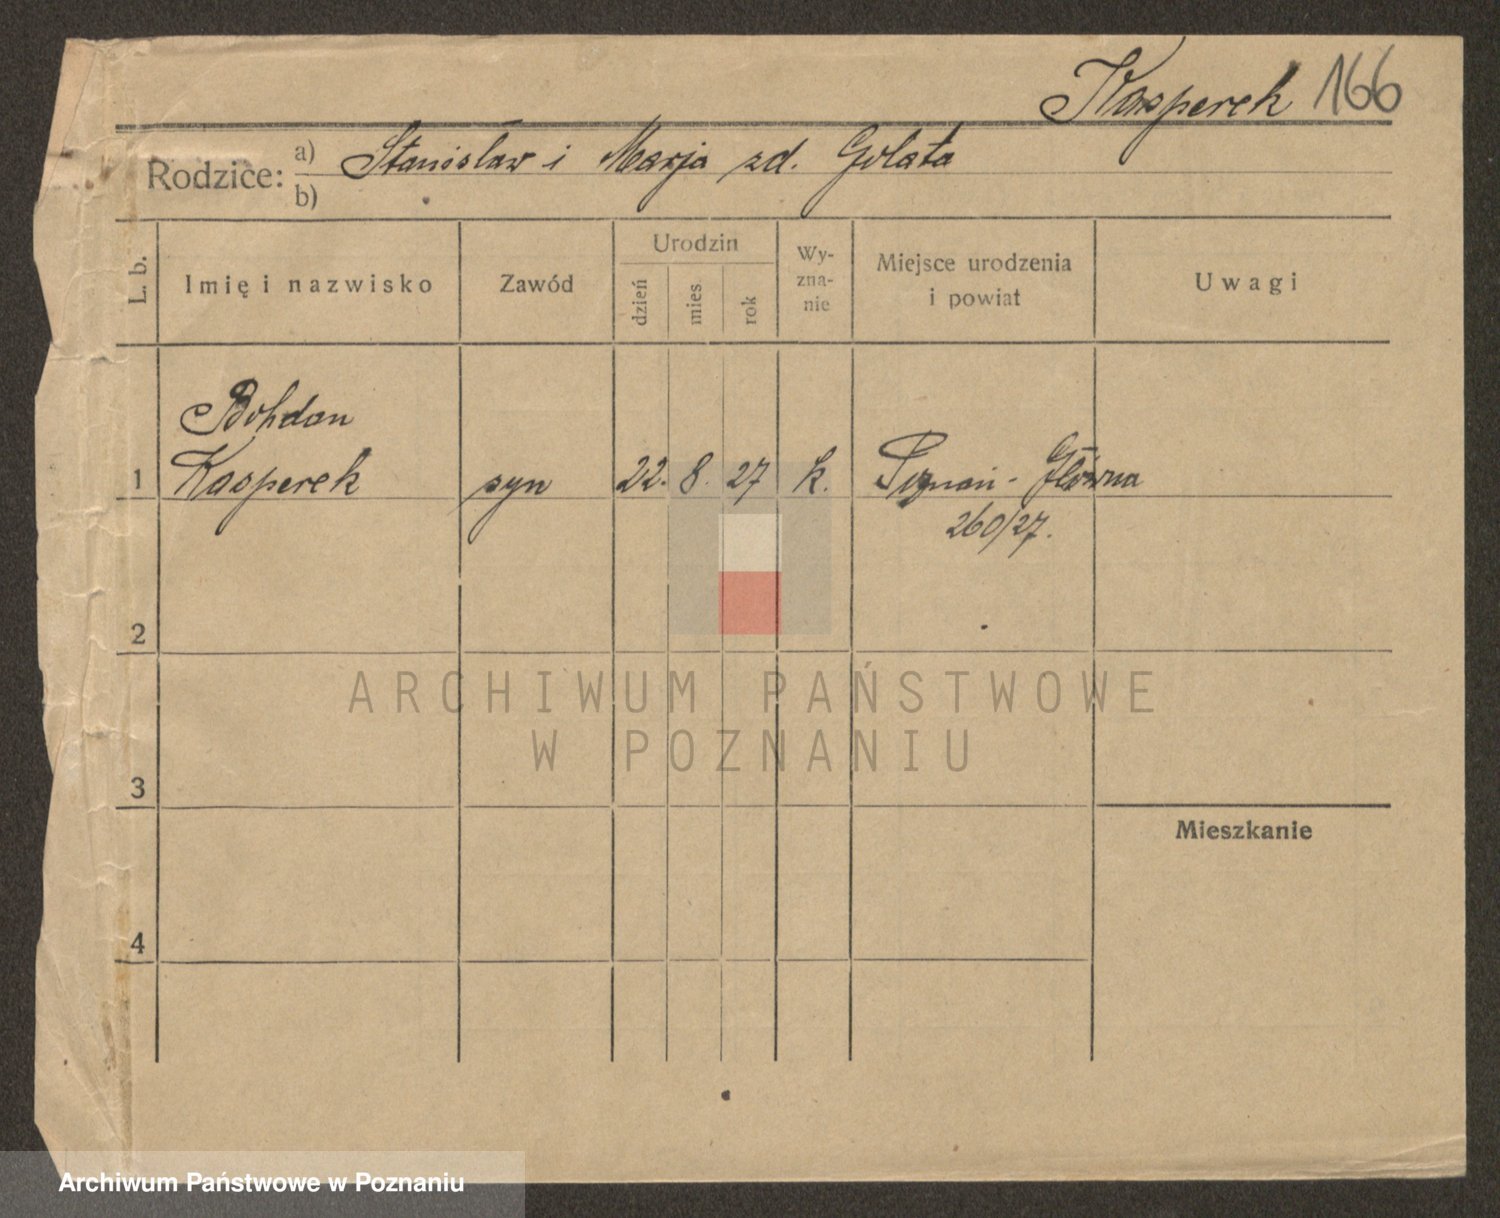 Kasperek 166
Rodzice: a) Stanisław i Marja zd. Golata
b)
L. b. Imię i nazwisko Zawód Urodzin dzień mies. rok Wy-zna-nie Miejsce urodzenia i powiat Uwagi
Bohdan
1 Kasperek syn 22. 8. 27 k. Poznań - Główna
260/27.
2
ARCHIWUM PAŃSTWOWE
W POZNANIU
3
Mieszkanie
4
Archiwum Państwowe w Poznaniu